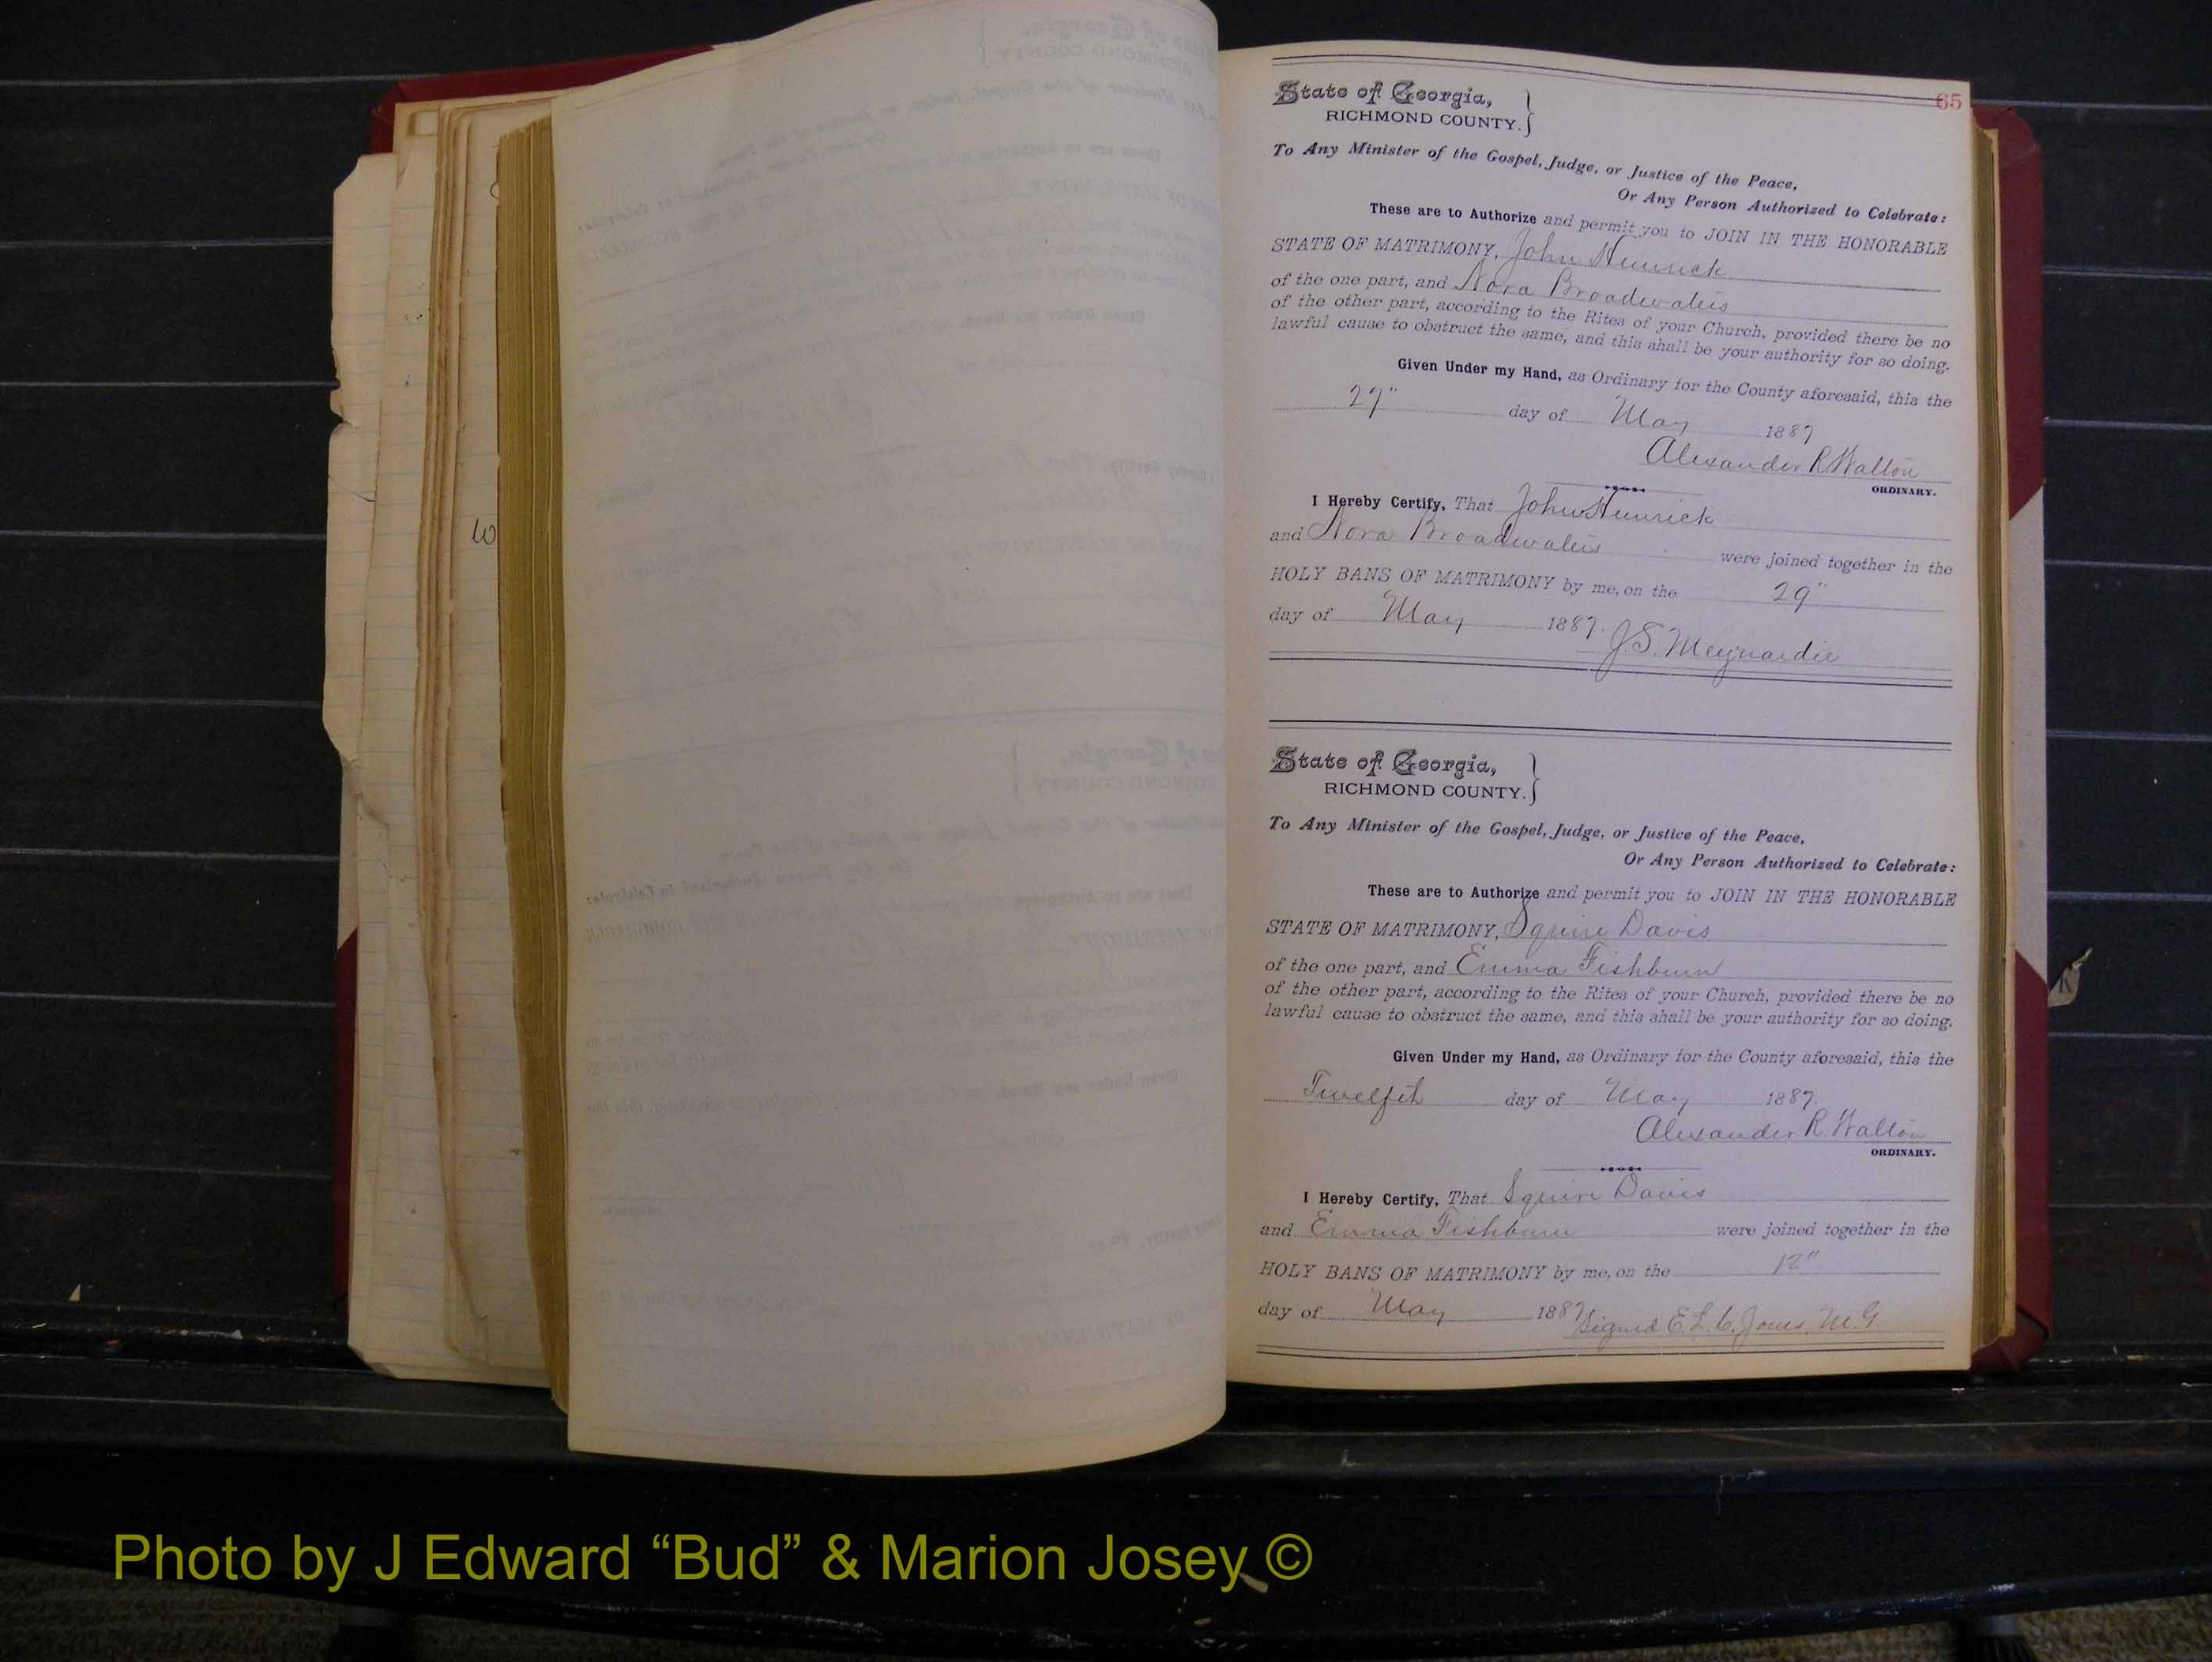 65
State of Georgia,
RICHMOND COUNTY.
To Any Minister of the Gospel, Judge, or Justice of the Peace,
Or Any Person Authorized to Celebrate:
These are to Authorize and permit you to JOIN IN THE HONORABLE
STATE OF MATRIMONY, John
of the one part, and Nora Broadwater
of the other part, according to the Rites of your Church, provided there be no
lawful cause to obstruct the same, and this shall be your authority for so doing.
Given Under my Hand, as Ordinary for the County aforesaid, this the
day of May 1887
Alexander R. Walton
ORDINARY.
I Hereby Certify, That John
and Nora Broadwater were joined together in the
HOLY BANS OF MATRIMONY by me, on the 29"
day of May 1887.
J.S. Meynardie
State of Georgia,
RICHMOND COUNTY.
To Any Minister of the Gospel, Judge, or Justice of the Peace,
Or Any Person Authorized to Celebrate:
These are to Authorize and permit you to JOIN IN THE HONORABLE
STATE OF MATRIMONY, Squire Davis
of the one part, and Emma Fishburn
of the other part, according to the Rites of your Church, provided there be no
lawful cause to obstruct the same, and this shall be your authority for so doing.
Given Under my Hand, as Ordinary for the County aforesaid, this the
Twelfth day of May 1887.
Alexander R. Walton
ORDINARY.
I Hereby Certify, That Squire Davis
and Emma Fishburn were joined together in the
HOLY BANS OF MATRIMONY by me, on the 12"
day of May 1887
Signed E.L.C. Jones, M.G.
Photo by J Edward “Bud” & Marion Josey ©